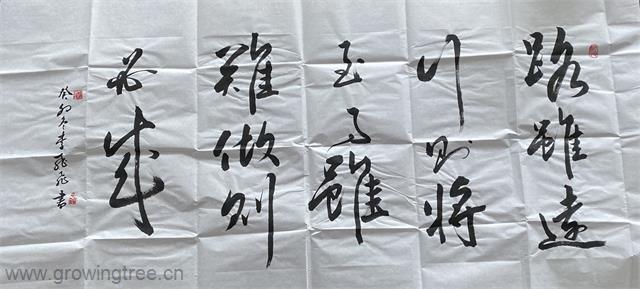 路雖遠
行则将
至事雖
難做则
必成
癸卯冬李飛書
www.growingtree.cn